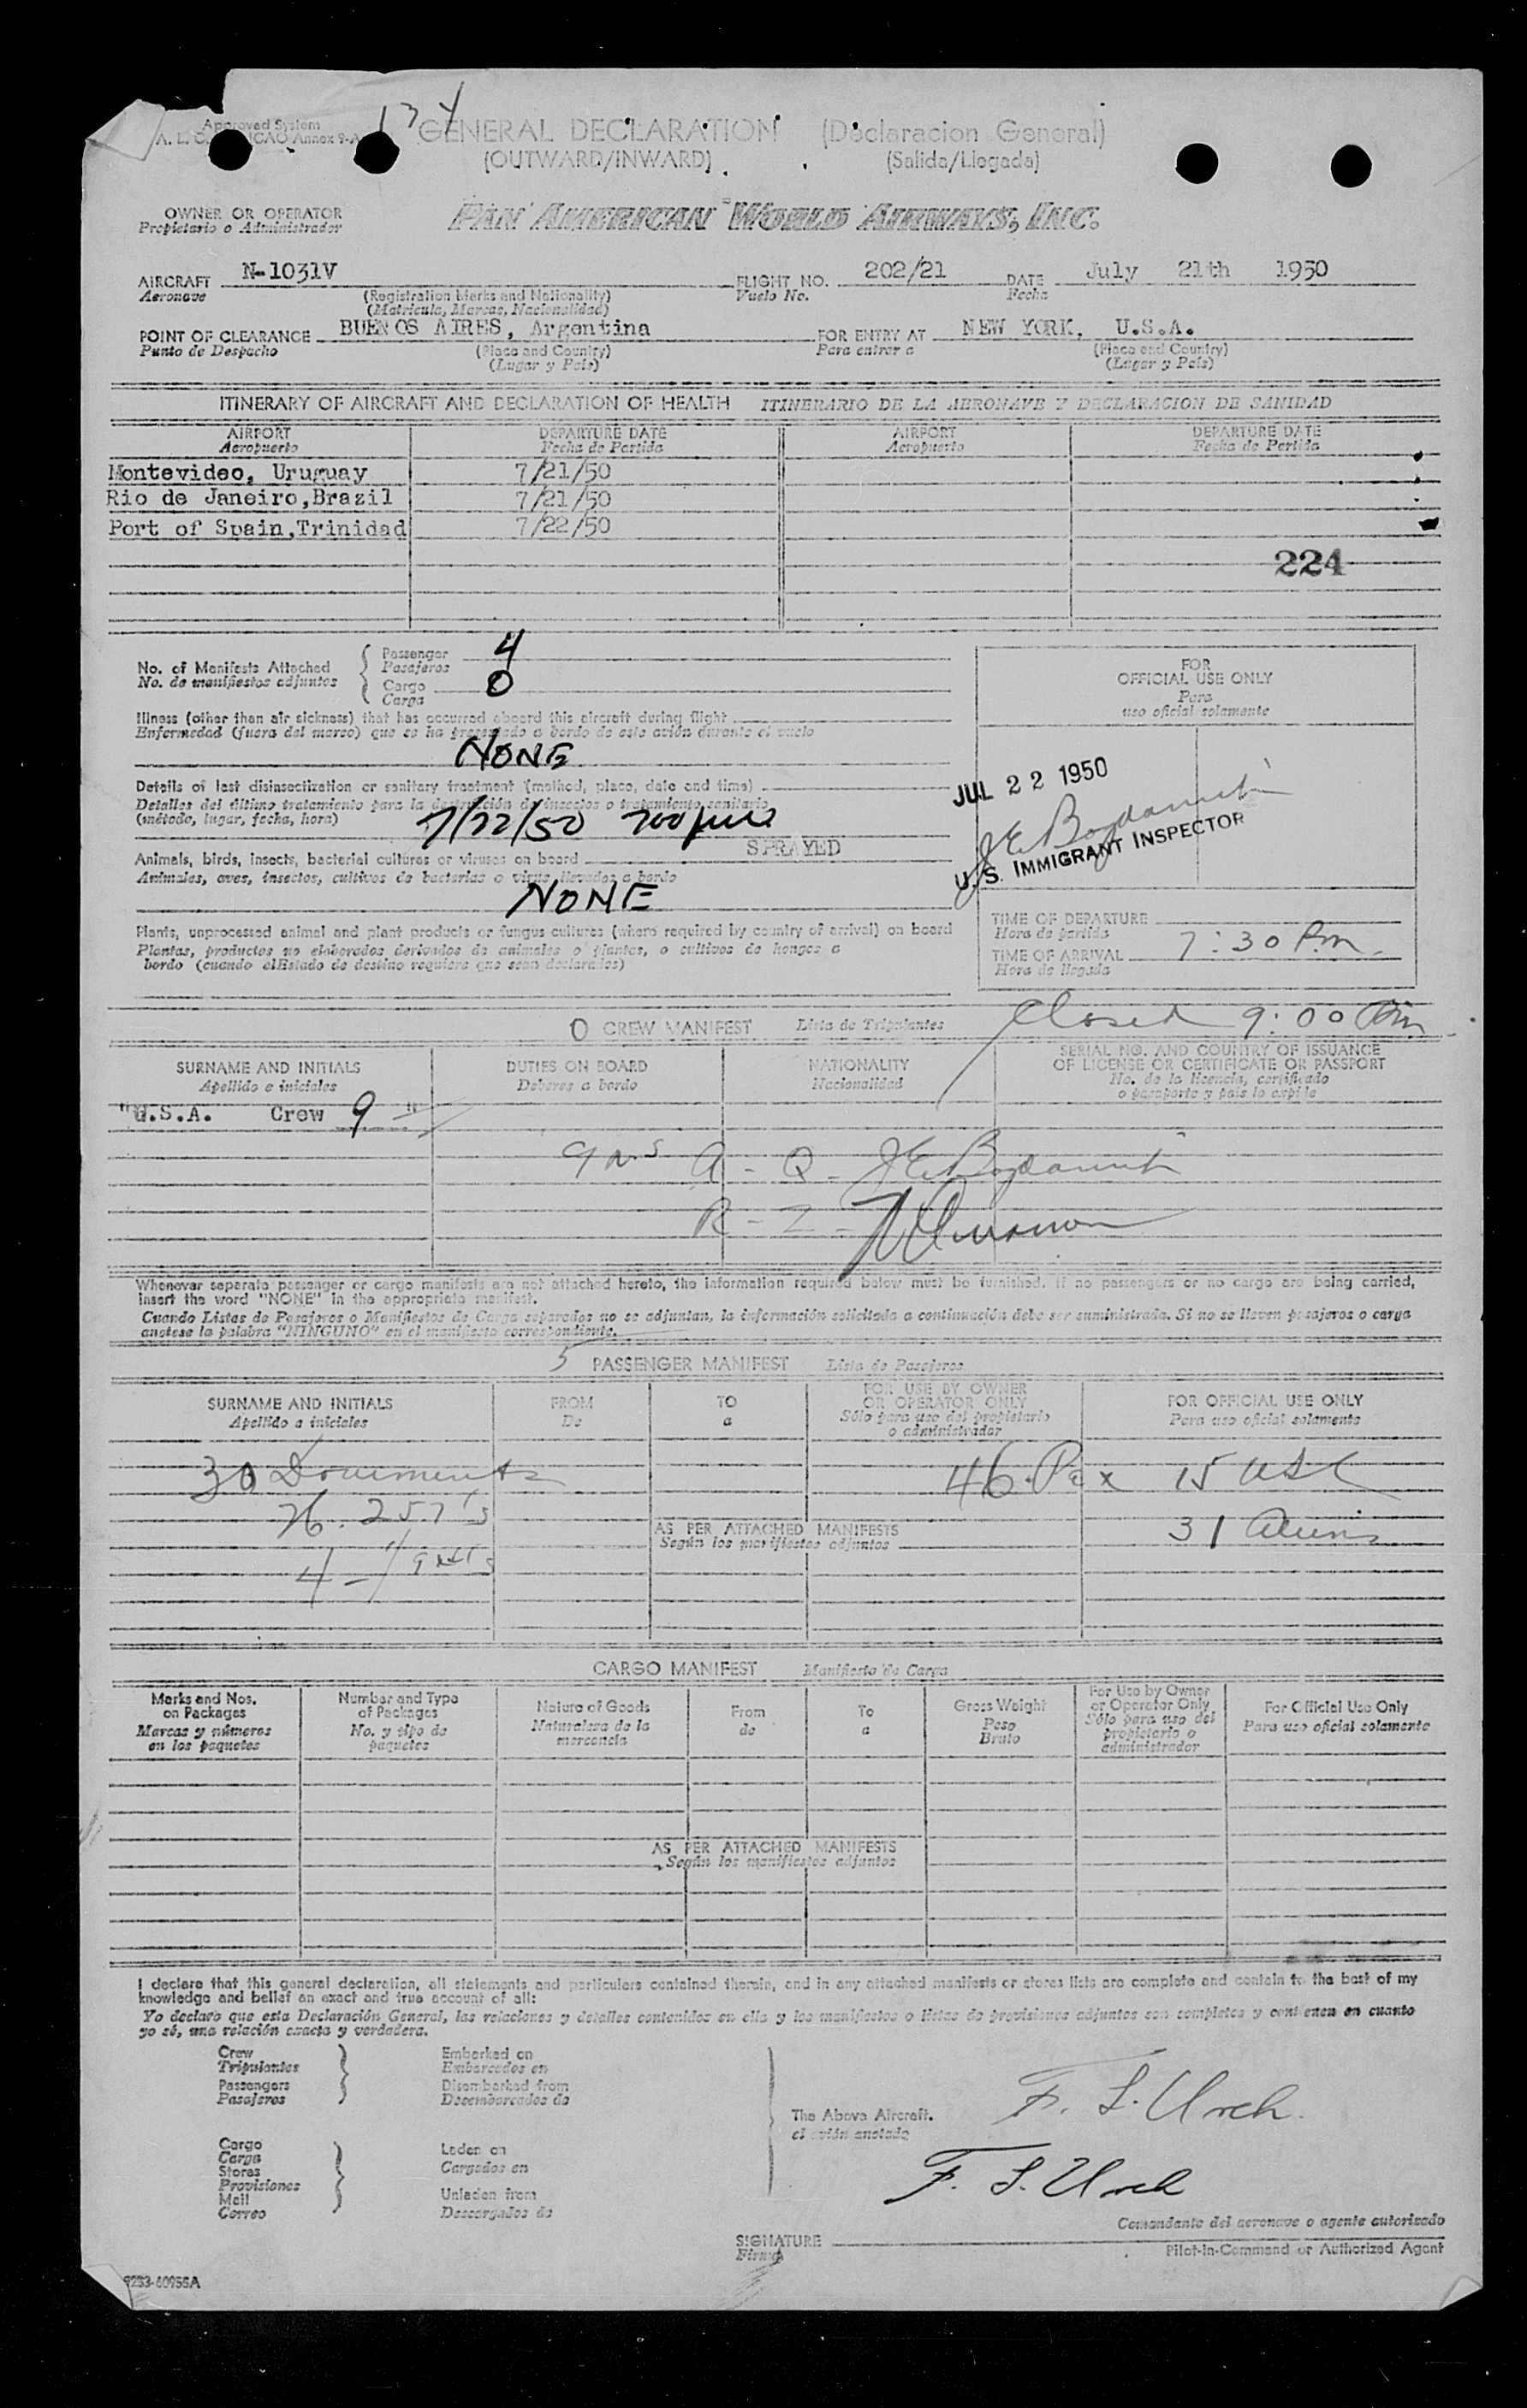 134
Approved System
GENERAL DECLARATION (Declaracion General)
(OUTWARD/INWARD) (Salida/Llegada)
OWNER OR OPERATOR
Propietario o Administrador
PAN AMERICAN WORLD AIRWAYS, INC.
AIRCRAFT N-1031V FLIGHT NO. 202/21 DATE July 21th 1950
Aeronave (Registration Marks and Nationality) Vuelo No. Fecha
(Matricula, Marcas, Nacionalidad)
POINT OF CLEARANCE BUENOS AIRES, Argentina FOR ENTRY AT NEW YORK, U.S.A.
Punto de Despacho (Place and Country) Para entrar a (Place and Country)
(Lugar y Pais) (Lugar y Pais)
ITINERARY OF AIRCRAFT AND DECLARATION OF HEALTH ITINERARIO DE LA AERONAVE Y DECLARACION DE SANIDAD
AIRPORT DEPARTURE DATE AIRPORT DEPARTURE DATE
Aeropuerto Fecha de Partida Aeropuerto Fecha de Partida
Montevideo, Uruguay 7/21/50
Rio de Janeiro,Brazil 7/21/50
Port of Spain,Trinidad 7/22/50
224
No. of Manifests Attached Passenger 4
No. de manifiestos adjuntos Pasajeros
Cargo 0
Carga
FOR
OFFICIAL USE ONLY
Para
uso oficial solamente
Illness (other than air sickness) that has occurred aboard this aircraft during flight
Enfermedad (fuera del mareo) que se ha presentado a bordo de este avión durante el vuelo
NONE
Details of last disinsectization or sanitary treatment (method, place, date and time)
Detalles del último tratamiento para la destrucción de insectos o tratamiento sanitario
(método, lugar, fecha, hora)
7/22/50 700
SPRAYED
JUL 22 1950
U.S. IMMIGRANT INSPECTOR
Animals, birds, insects, bacterial cultures or viruses on board
Animales, aves, insectos, cultivos de bacterias o virus llevados a bordo
NONE
Plants, unprocessed animal and plant products or fungus cultures (where required by country of arrival) on board
Plantas, productos no elaborados derivados de animales o plantas, o cultivos de hongos a
bordo (cuando elEstado de destino requiera que sean declarados)
TIME OF DEPARTURE
Hora de partida
TIME OF ARRIVAL 7:30 Pm.
Hora de llegada
Closed 9:00 Pm
0 CREW MANIFEST Lista de Tripulantes
SURNAME AND INITIALS DUTIES ON BOARD NATIONALITY SERIAL NO. AND COUNTRY OF ISSUANCE
OF LICENSE OR CERTIFICATE OR PASSPORT
Apellido e iniciales Deberes a bordo Nacionalidad No. de la licencia, certificado
o pasaporte y pais lo expide
"U.S.A. Crew 9 "
A - Q -
R - Z -
Whenever separate passenger or cargo manifests are not attached hereto, the information required below must be furnished. If no passengers or no cargo are being carried,
insert the word "NONE" in the appropriate manifest.
Cuando Listas de Pasajeros o Manifiestos de Carga separados no se adjuntan, la información solicitada a continuación debe ser suministrada. Si no se lleven pasajeros o carga
anotese la palabra "NINGUNO" en el manifiesto correspondiente.
5 PASSENGER MANIFEST Lista de Pasajeros
SURNAME AND INITIALS FROM TO FOR USE BY OWNER FOR OFFICIAL USE ONLY
OR OPERATOR ONLY
Apellido a iniciales De a Sólo para uso del propietario Para uso oficial solamente
o administrador
30 Documents 46 Pax 15 USC
26. 257's 31 Aliens
AS PER ATTACHED MANIFESTS
Según los manifiestos adjuntos
CARGO MANIFEST Manifiesto de Carga
Marks and Nos. Number and Type Nature of Goods From To Gross Weight For Use by Owner For Official Use Only
on Packages of Packages or Operator Only
Marcas y números No. y tipo de Naturaleza de la de a Peso Sólo para uso del Para uso oficial solamente
en los paquetes paquetes mercancia Bruto propietario o
administrador
AS PER ATTACHED MANIFESTS
Según los manifiestos adjuntos
I declare that this general declaration, all statements and particulars contained therein, and in any attached manifests or stores lists are complete and contain to the best of my
knowledge and belief an exact and true account of all:
Yo declaro que esta Declaración General, las relaciones y detalles contenidos en ella y los manifiestos o listas de provisiones adjuntos son completos y contienen en cuanto
yo sé, una relación exacta y verdadera.
Crew Embarked on
Tripulantes Embarcados en
Passengers Disembarked from
Pasajeros Desembarcados de
The Above Aircraft.
el avión anotado
F. S. Urch.
Cargo Laden on
Carga Cargados en
Stores
Provisiones Unladen from
Mail
Correo Descargados de
F. S. Urch
Comandante del aeronave o agente autorizado
SIGNATURE Pilot-in-Command or Authorized Agent
Firma